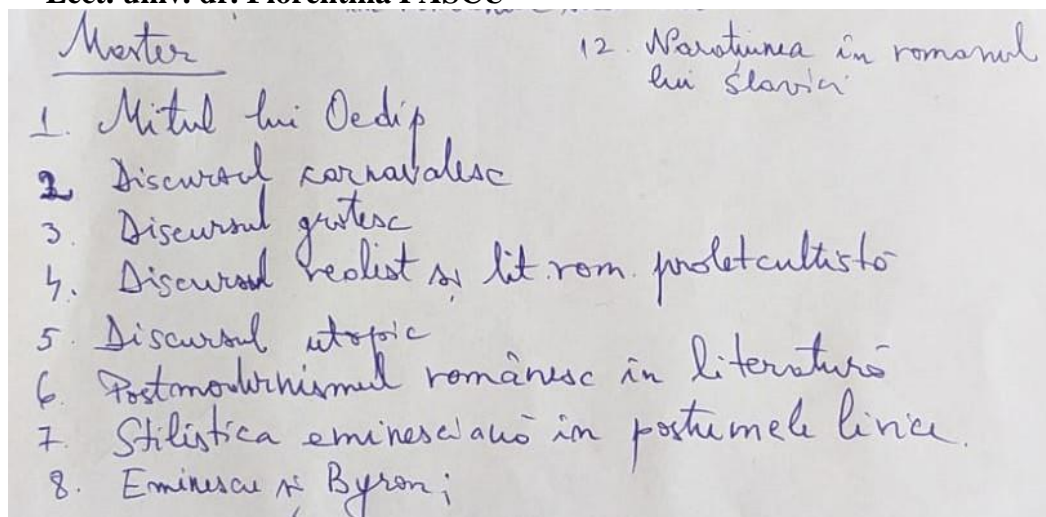 Lect. univ. dr. Florentina PASCU
Master
1. Mitul lui Oedip
2 Discursul carnavalesc
3. Discursul grotesc
4. Discursul realist și lit. rom. proletcultistă
5. Discursul utopic
6. Postmodernismul românesc în literatură
7. Stilistica eminesciană în postumele lirice.
8. Eminescu și Byron;
12. Narațiunea în romanul
lui Slavici